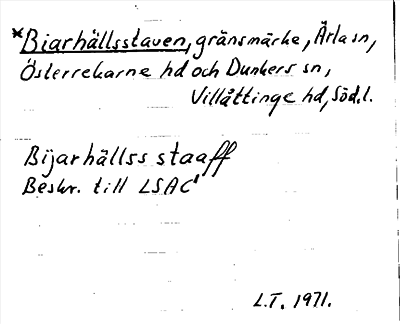 *Biarhällsstaven, gränsmärke, Ärla sn,
Österrekarne hd och Dunkers sn,
Villåttinge hd, Söd.l.
Bijarhällss staaff
Beskr. till LSAC'
L.T. 1971.